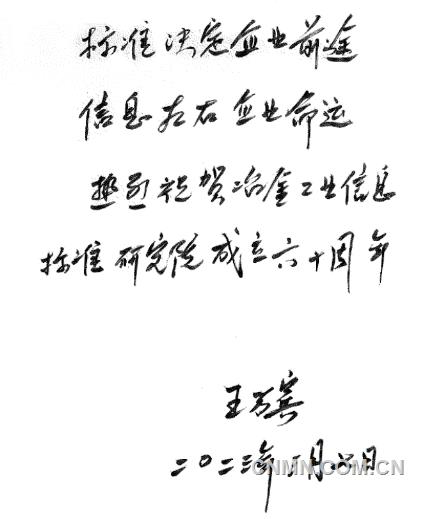 标准决定企业前途
信息左右企业命运
热烈祝贺冶金工业信息
标准研究院成立六十周年
王万宾
二〇二三年二月六日
CNMN.COM.CN